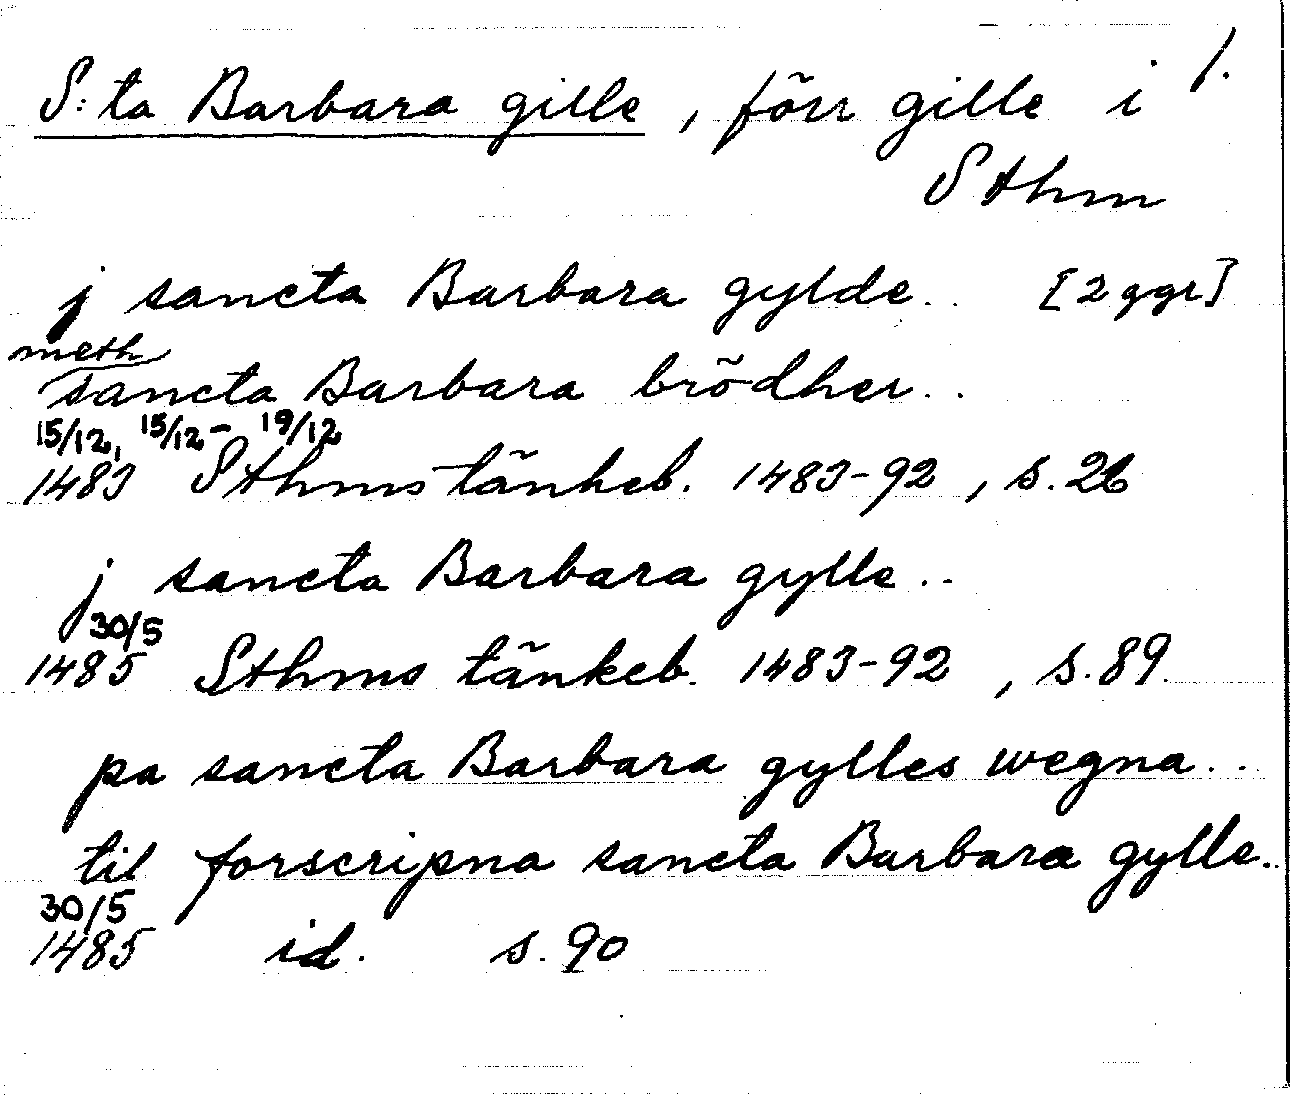 S:ta Barbara gille, förr gille i 1.
Sthm
j sancta Barbara gylde.. [2 ggr]
meth
sancta Barbara brödher..
15/12, 15/12- 19/12
1483 Sthms tänkeb. 1483-92, s. 26
j sancta Barbara gylle..
30/5
1485 Sthms tänkeb. 1483-92, s. 89
pa sancta Barbara gylles wegna..
til forscripna sancta Barbara gylle..
30/5
1485 id. s. 90